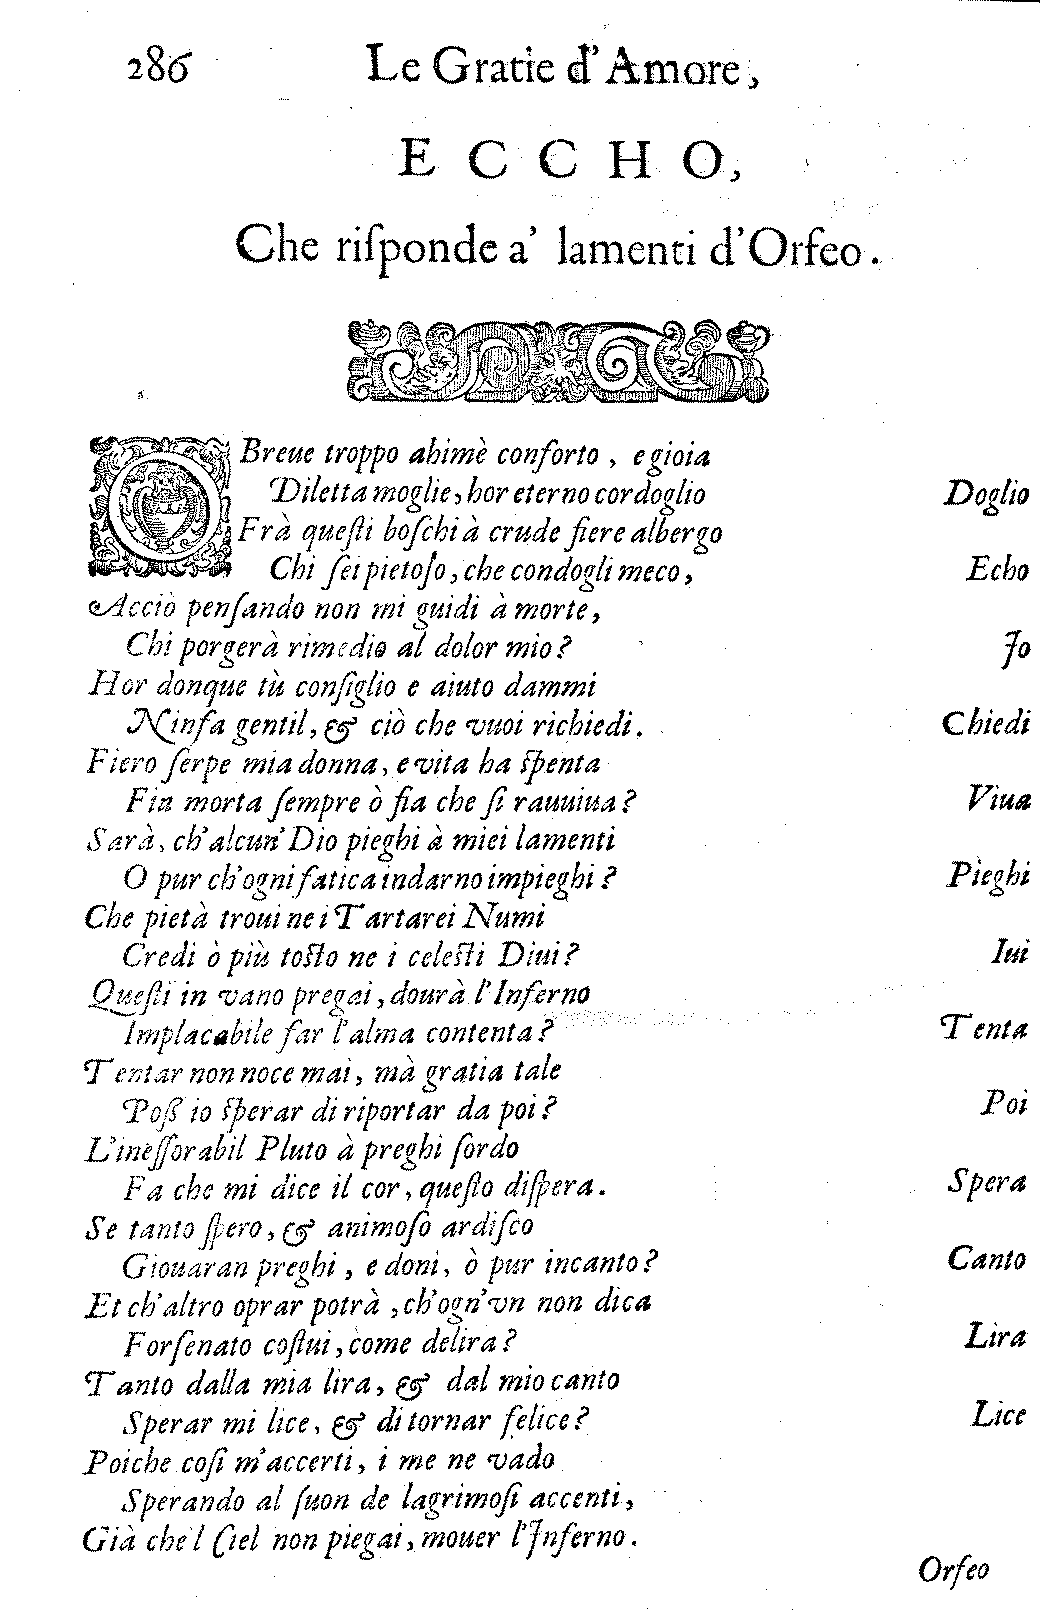 286 Le Gratie d'Amore,
ECCHO,
Che riſponde a' lamenti d'Orfeo.
O Breue troppo ahimè conforto, e gioia
Diletta moglie, hor eterno cordoglio Doglio
Frà queſti boſchi à crude fiere albergo
Chi ſei pietoſo, che condogli meco, Echo
Acciò penſando non mi guidi à morte,
Chi porgerà rimedio al dolor mio? Io
Hor donque tù conſiglio e aiuto dammi
Ninfa gentil, & ciò che vuoi richiedi. Chiedi
Fiero ſerpe mia donna, e vita ha ſpenta
Fia morta ſempre ò fia che ſi rauuiua? Viua
Sarà, ch'alcun' Dio pieghi à miei lamenti
O pur ch'ogni fatica indarno impieghi? Pieghi
Che pietà troui ne i Tartarei Numi
Credi ò più toſto ne i celeſti Diui? Iui
Queſti in vano pregai, dourà l'Inferno
Implacabile far l'alma contenta? Tenta
Tentar non noce mai, mà gratia tale
Poſſ io ſperar di riportar da poi? Poi
L'ineſſorabil Pluto à preghi ſordo
Fa che mi dice il cor, queſto diſpera. Spera
Se tanto ſpero, & animoſo ardiſco
Giouaran preghi, e doni, ò pur incanto? Canto
Et ch'altro oprar potrà, ch'ogn'vn non dica
Forſenato coſtui, come delira? Lira
Tanto dalla mia lira, & dal mio canto
Sperar mi lice, & di tornar felice? Lice
Poiche coſi m'accerti, i me ne vado
Sperando al ſuon de lagrimoſi accenti,
Già che'l Ciel non piegai, mouer l'Inferno.
Orfeo